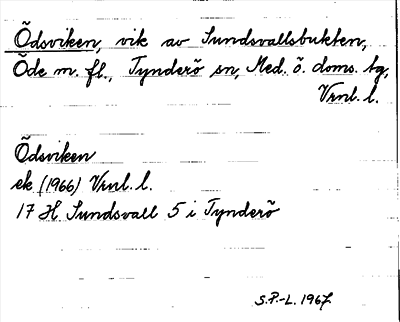 Ödsviken, vik av Sundsvallsbukten,
Öde m. fl., Tynderö sn, Med. ö. doms. tg,
Vrnl. l.
Ödsviken
ek (1966) Vrnl. l.
17 H Sundsvall 5 i Tynderö
S.P.-L. 1967